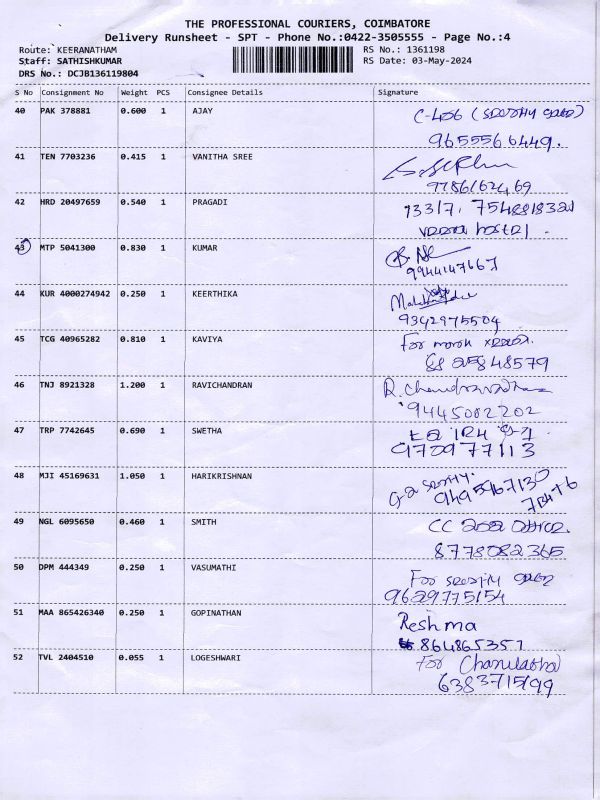 THE PROFESSIONAL COURIERS, COIMBATORE
Delivery Runsheet - SPT - Phone No.:0422-3505555 - Page No.:4
Route: KEERANATHAM RS No.: 1361198
Staff: SATHISHKUMAR RS Date: 03-May-2024
DRS No.: DCJB136119804
S No Consignment No Weight PCS Consignee Details Signature
40 PAK 378881 0.600 1 AJAY C-406
9655566449.
41 TEN 7703236 0.415 1 VANITHA SREE
9786162469
42 HRD 20497659 0.540 1 PRAGADI
hostel.
43 MTP 5041300 0.830 1 KUMAR
9944147667
44 KUR 4000274942 0.250 1 KEERTHIKA
9342975504
45 TCG 40965282 0.810 1 KAVIYA For
88 25848579
46 TNJ 8921328 1.200 1 RAVICHANDRAN
9445002202
47 TRP 7742645 0.690 1 SWETHA
970977113
48 MJI 45169631 1.050 1 HARIKRISHNAN
49 NGL 6095650 0.460 1 SMITH CC office.
8778082365
50 DPM 444349 0.250 1 VASUMATHI For
9629775154
51 MAA 865426340 0.250 1 GOPINATHAN Reshma
864865357
52 TVL 2404510 0.055 1 LOGESHWARI For
6383715199